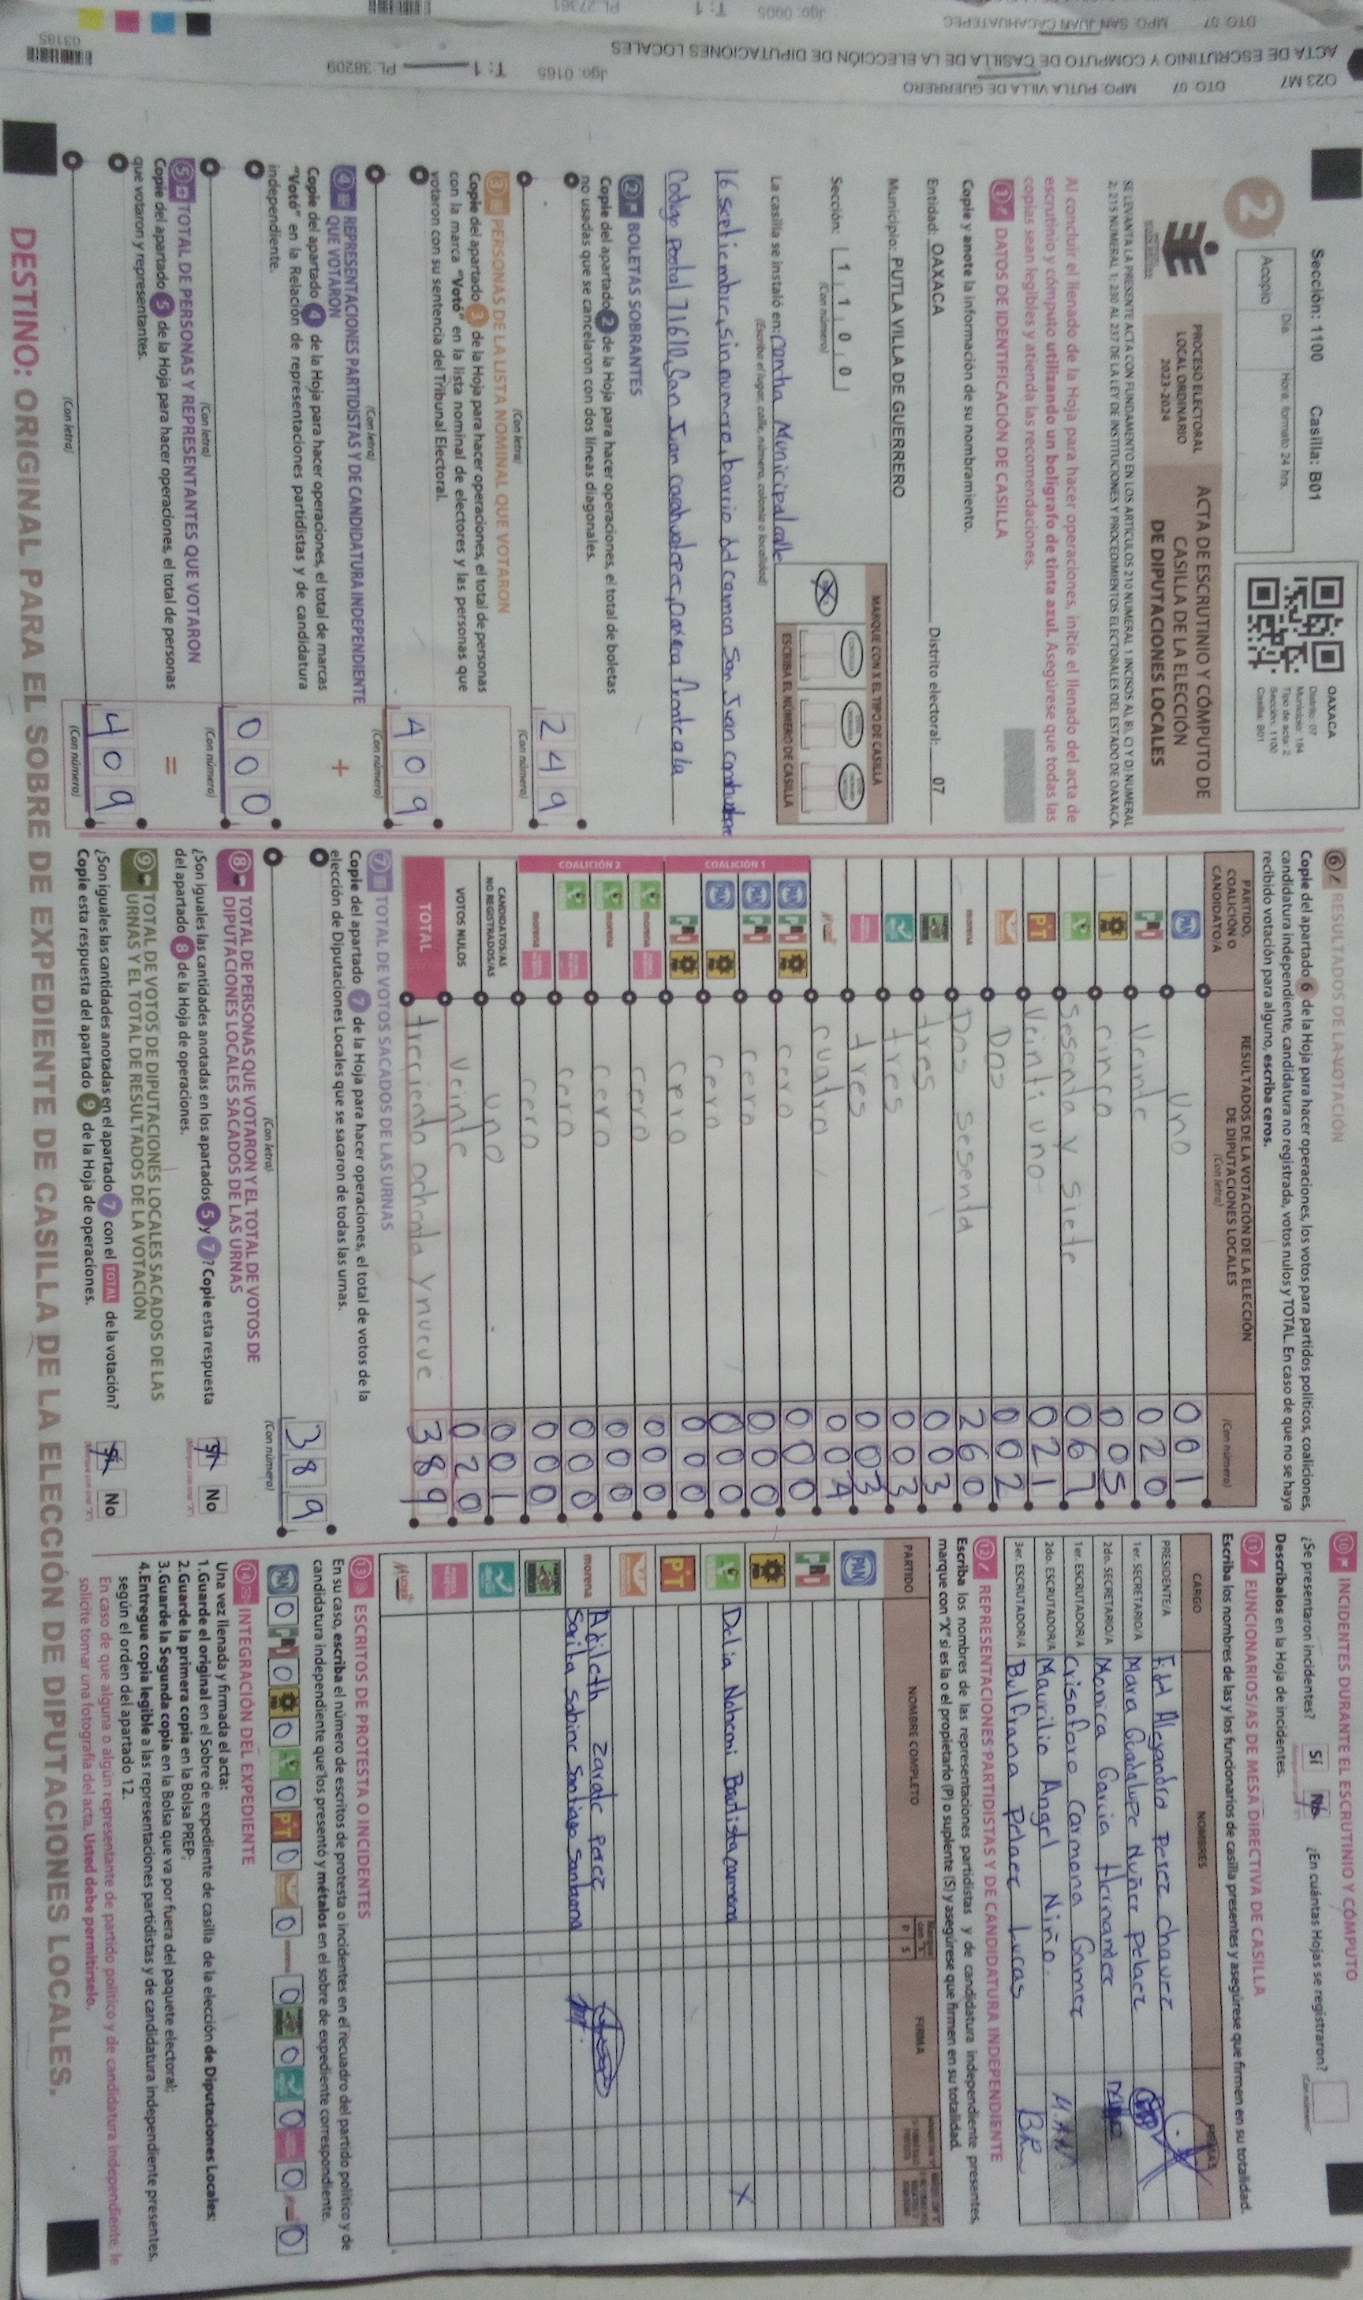 Sección: 1100 Casilla: B01
2
Acopio
Día
Hora: formato 24 hrs.
OAXACA
Distrito: 07
Municipio: 184
Tipo de acta: 2
Sección: 1100
Casilla: B01
PROCESO ELECTORAL
LOCAL ORDINARIO
2023-2024
ACTA DE ESCRUTINIO Y CÓMPUTO DE
CASILLA DE LA ELECCIÓN
DE DIPUTACIONES LOCALES
SE LEVANTA LA PRESENTE ACTA CON FUNDAMENTO EN LOS ARTÍCULOS 210 NUMERAL 1 INCISOS A), B), C) Y D) NUMERAL
2; 215 NUMERAL 1; 230 AL 237 DE LA LEY DE INSTITUCIONES Y PROCEDIMIENTOS ELECTORALES DEL ESTADO DE OAXACA.
Al concluir el llenado de la Hoja para hacer operaciones, inicie el llenado del acta de
escrutinio y cómputo utilizando un bolígrafo de tinta azul. Asegúrese que todas las
copias sean legibles y atienda las recomendaciones.
1 DATOS DE IDENTIFICACIÓN DE CASILLA
Copie y anote la información de su nombramiento.
Entidad: OAXACA Distrito electoral: 07
Municipio: PUTLA VILLA DE GUERRERO
Sección: 1 1 0 0
(Con número)
MARQUE CON X EL TIPO DE CASILLA
ESCRIBA EL NÚMERO DE CASILLA
La casilla se instaló en: Cancha Municipal calle
(Escriba el lugar, calle, número, colonia o localidad)
16 septiembre, sin numero, barrio del carmen San Juan
Codigo Postal 71610, San Juan
2 BOLETAS SOBRANTES
Copie del apartado 2 de la Hoja para hacer operaciones, el total de boletas
no usadas que se cancelaron con dos líneas diagonales.
249
(Con letra) (Con número)
3 PERSONAS DE LA LISTA NOMINAL QUE VOTARON
Copie del apartado 3 de la Hoja para hacer operaciones, el total de personas
con la marca "Votó" en la lista nominal de electores y las personas que
votaron con su sentencia del Tribunal Electoral.
409
(Con letra) (Con número)
4 REPRESENTACIONES PARTIDISTAS Y DE CANDIDATURA INDEPENDIENTE
QUE VOTARON
+
Copie del apartado 4 de la Hoja para hacer operaciones, el total de marcas
"Votó" en la Relación de representaciones partidistas y de candidatura
independiente.
000
(Con letra) (Con número)
5 TOTAL DE PERSONAS Y REPRESENTANTES QUE VOTARON
=
Copie del apartado 5 de la Hoja para hacer operaciones, el total de personas
que votaron y representantes.
409
(Con letra) (Con número)
6 RESULTADOS DE LA VOTACIÓN
Copie del apartado 6 de la Hoja para hacer operaciones, los votos para partidos políticos, coaliciones,
candidatura independiente, candidatura no registrada, votos nulos y TOTAL. En caso de que no se haya
recibido votación para alguno, escriba ceros.
PARTIDO,
COALICIÓN O
CANDIDATO/A
RESULTADOS DE LA VOTACIÓN DE LA ELECCIÓN
DE DIPUTACIONES LOCALES
(Con letra)
(Con número)
PAN Uno 001
PRI Veinte 020
PRD cinco 005
Sesenta y siete 067
PT Veinti uno 021
Dos 002
morena Dos sesenta 260
tres 003
tres 003
tres 003
cuatro 004
COALICIÓN 1
PAN PRI PRD cero 000
PAN PRI cero 000
PAN PRD cero 000
PRI PRD cero 000
COALICIÓN 2
morena cero 000
morena cero 000
cero 000
morena cero 000
CANDIDATOS/AS
NO REGISTRADOS/AS uno 001
VOTOS NULOS Veinte 020
TOTAL treciento ochenta y nueve 389
7 TOTAL DE VOTOS SACADOS DE LAS URNAS
Copie del apartado 7 de la Hoja para hacer operaciones, el total de votos de la
elección de Diputaciones Locales que se sacaron de todas las urnas.
389
(Con letra) (Con número)
8 TOTAL DE PERSONAS QUE VOTARON Y EL TOTAL DE VOTOS DE
DIPUTACIONES LOCALES SACADOS DE LAS URNAS
¿Son iguales las cantidades anotadas en los apartados 5 y 7? Copie esta respuesta
del apartado 8 de la Hoja de operaciones.
Sí No
9 TOTAL DE VOTOS DE DIPUTACIONES LOCALES SACADOS DE LAS
URNAS Y EL TOTAL DE RESULTADOS DE LA VOTACIÓN
¿Son iguales las cantidades anotadas en el apartado 7 con el TOTAL de la votación?
Copie esta respuesta del apartado 9 de la Hoja de operaciones.
Sí No
10 INCIDENTES DURANTE EL ESCRUTINIO Y CÓMPUTO
¿Se presentaron incidentes? Sí No ¿En cuántas Hojas se registraron?
(Con número)
Descríbalos en la Hoja de incidentes.
11 FUNCIONARIOS/AS DE MESA DIRECTIVA DE CASILLA
Escriba los nombres de las y los funcionarios de casilla presentes y asegúrese que firmen en su totalidad.
CARGO NOMBRES FIRMAS
PRESIDENTE/A Alejandro Perez chavez
1er. SECRETARIO/A Mara Guadalupe Nuñez Pelaez
2do. SECRETARIO/A Monica Garcia Hernandez
1er. ESCRUTADOR/A Crisoforo Carmona Gomez
2do. ESCRUTADOR/A Maurilio Angel Niño.
3er. ESCRUTADOR/A Bulfrana Pelaez Lucas
12 REPRESENTACIONES PARTIDISTAS Y DE CANDIDATURA INDEPENDIENTE
Escriba los nombres de las representaciones partidistas y de candidatura independiente presentes,
marque con "X" si es la o el propietario (P) o suplente (S) y asegúrese que firmen en su totalidad.
PARTIDO NOMBRE COMPLETO P S FIRMA
PAN
PRI
PRD
Delia Nohemi Bautista X
PT
morena Zarate Perez
Sabino Santiago
13 ESCRITOS DE PROTESTA O INCIDENTES
En su caso, escriba el número de escritos de protesta o incidentes en el recuadro del partido político y de
candidatura independiente que los presentó y métalos en el sobre de expediente correspondiente.
PAN 0 PRI 0 PRD 0 0 PT 0 0 0 0 0 0 0
14 INTEGRACIÓN DEL EXPEDIENTE
Una vez llenada y firmada el acta:
1. Guarde el original en el Sobre de expediente de casilla de la elección de Diputaciones Locales;
2. Guarde la primera copia en la Bolsa PREP;
3. Guarde la Segunda copia en la Bolsa que va por fuera del paquete electoral;
4. Entregue copia legible a las representaciones partidistas y de candidatura independiente presentes,
según el orden del apartado 12.
En caso de que alguna o algún representante de partido político y de candidatura independiente, le
solicite tomar una fotografía del acta, Usted debe permitírselo.
DESTINO: ORIGINAL PARA EL SOBRE DE EXPEDIENTE DE CASILLA DE LA ELECCIÓN DE DIPUTACIONES LOCALES.
023 M7 DTO: 07 MPO: PUTLA VILLA DE GUERRERO Jgo: 0165 T: 1 PL: 38209
ACTA DE ESCRUTINIO Y COMPUTO DE CASILLA DE LA ELECCIÓN DE DIPUTACIONES LOCALES
03185
DTO: 07 MPO: SAN JUAN CACAHUATEPEC Jgo: 0005 T: 1 PL: 27361